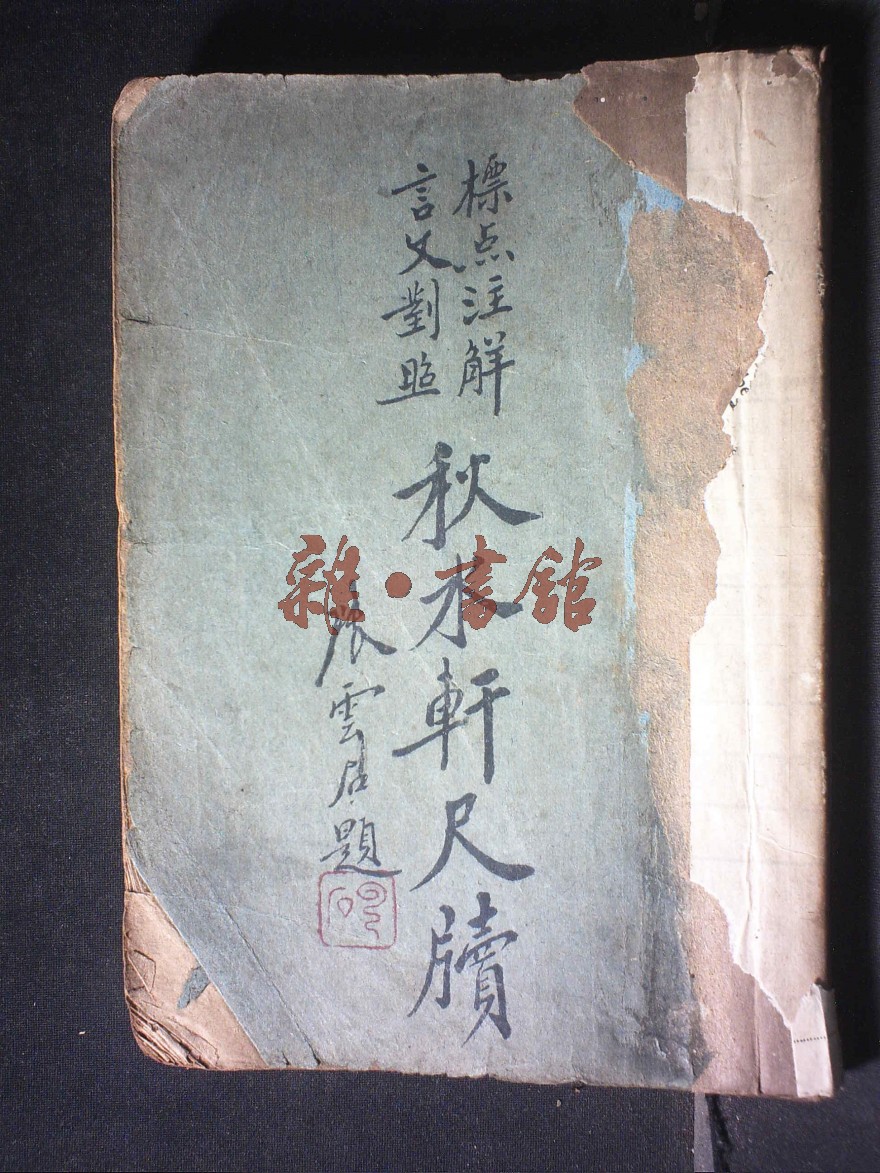 標点注解
言文對照
秋水軒尺牘
雲石題
雜·書館